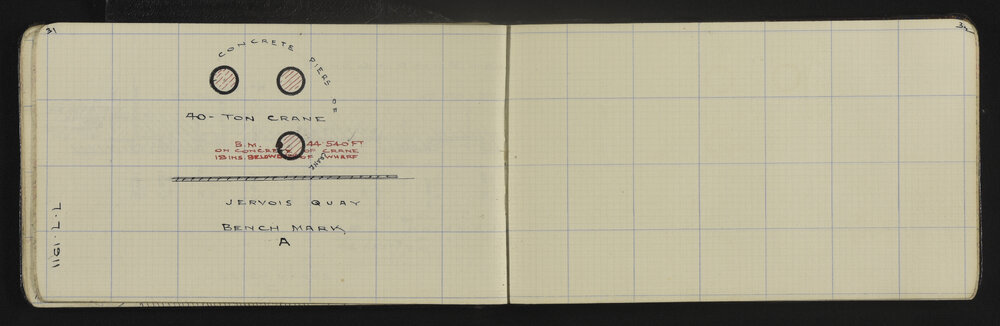 31
32
CONCRETE PIERS OF CRANE
40-TON CRANE
B.M. 44.540 FT
ON CONCRETE OF CRANE
18 INS. BELOW OF WHARF
JERVOIS QUAY
BENCH MARK
A
7.7.1911